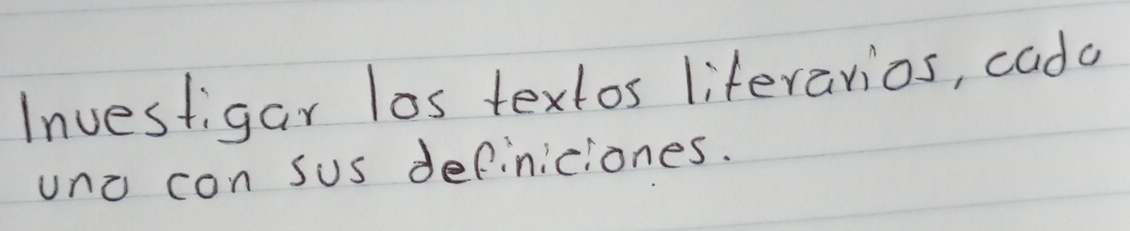 Investigar los textos literarios, cada
uno con sus definiciones.